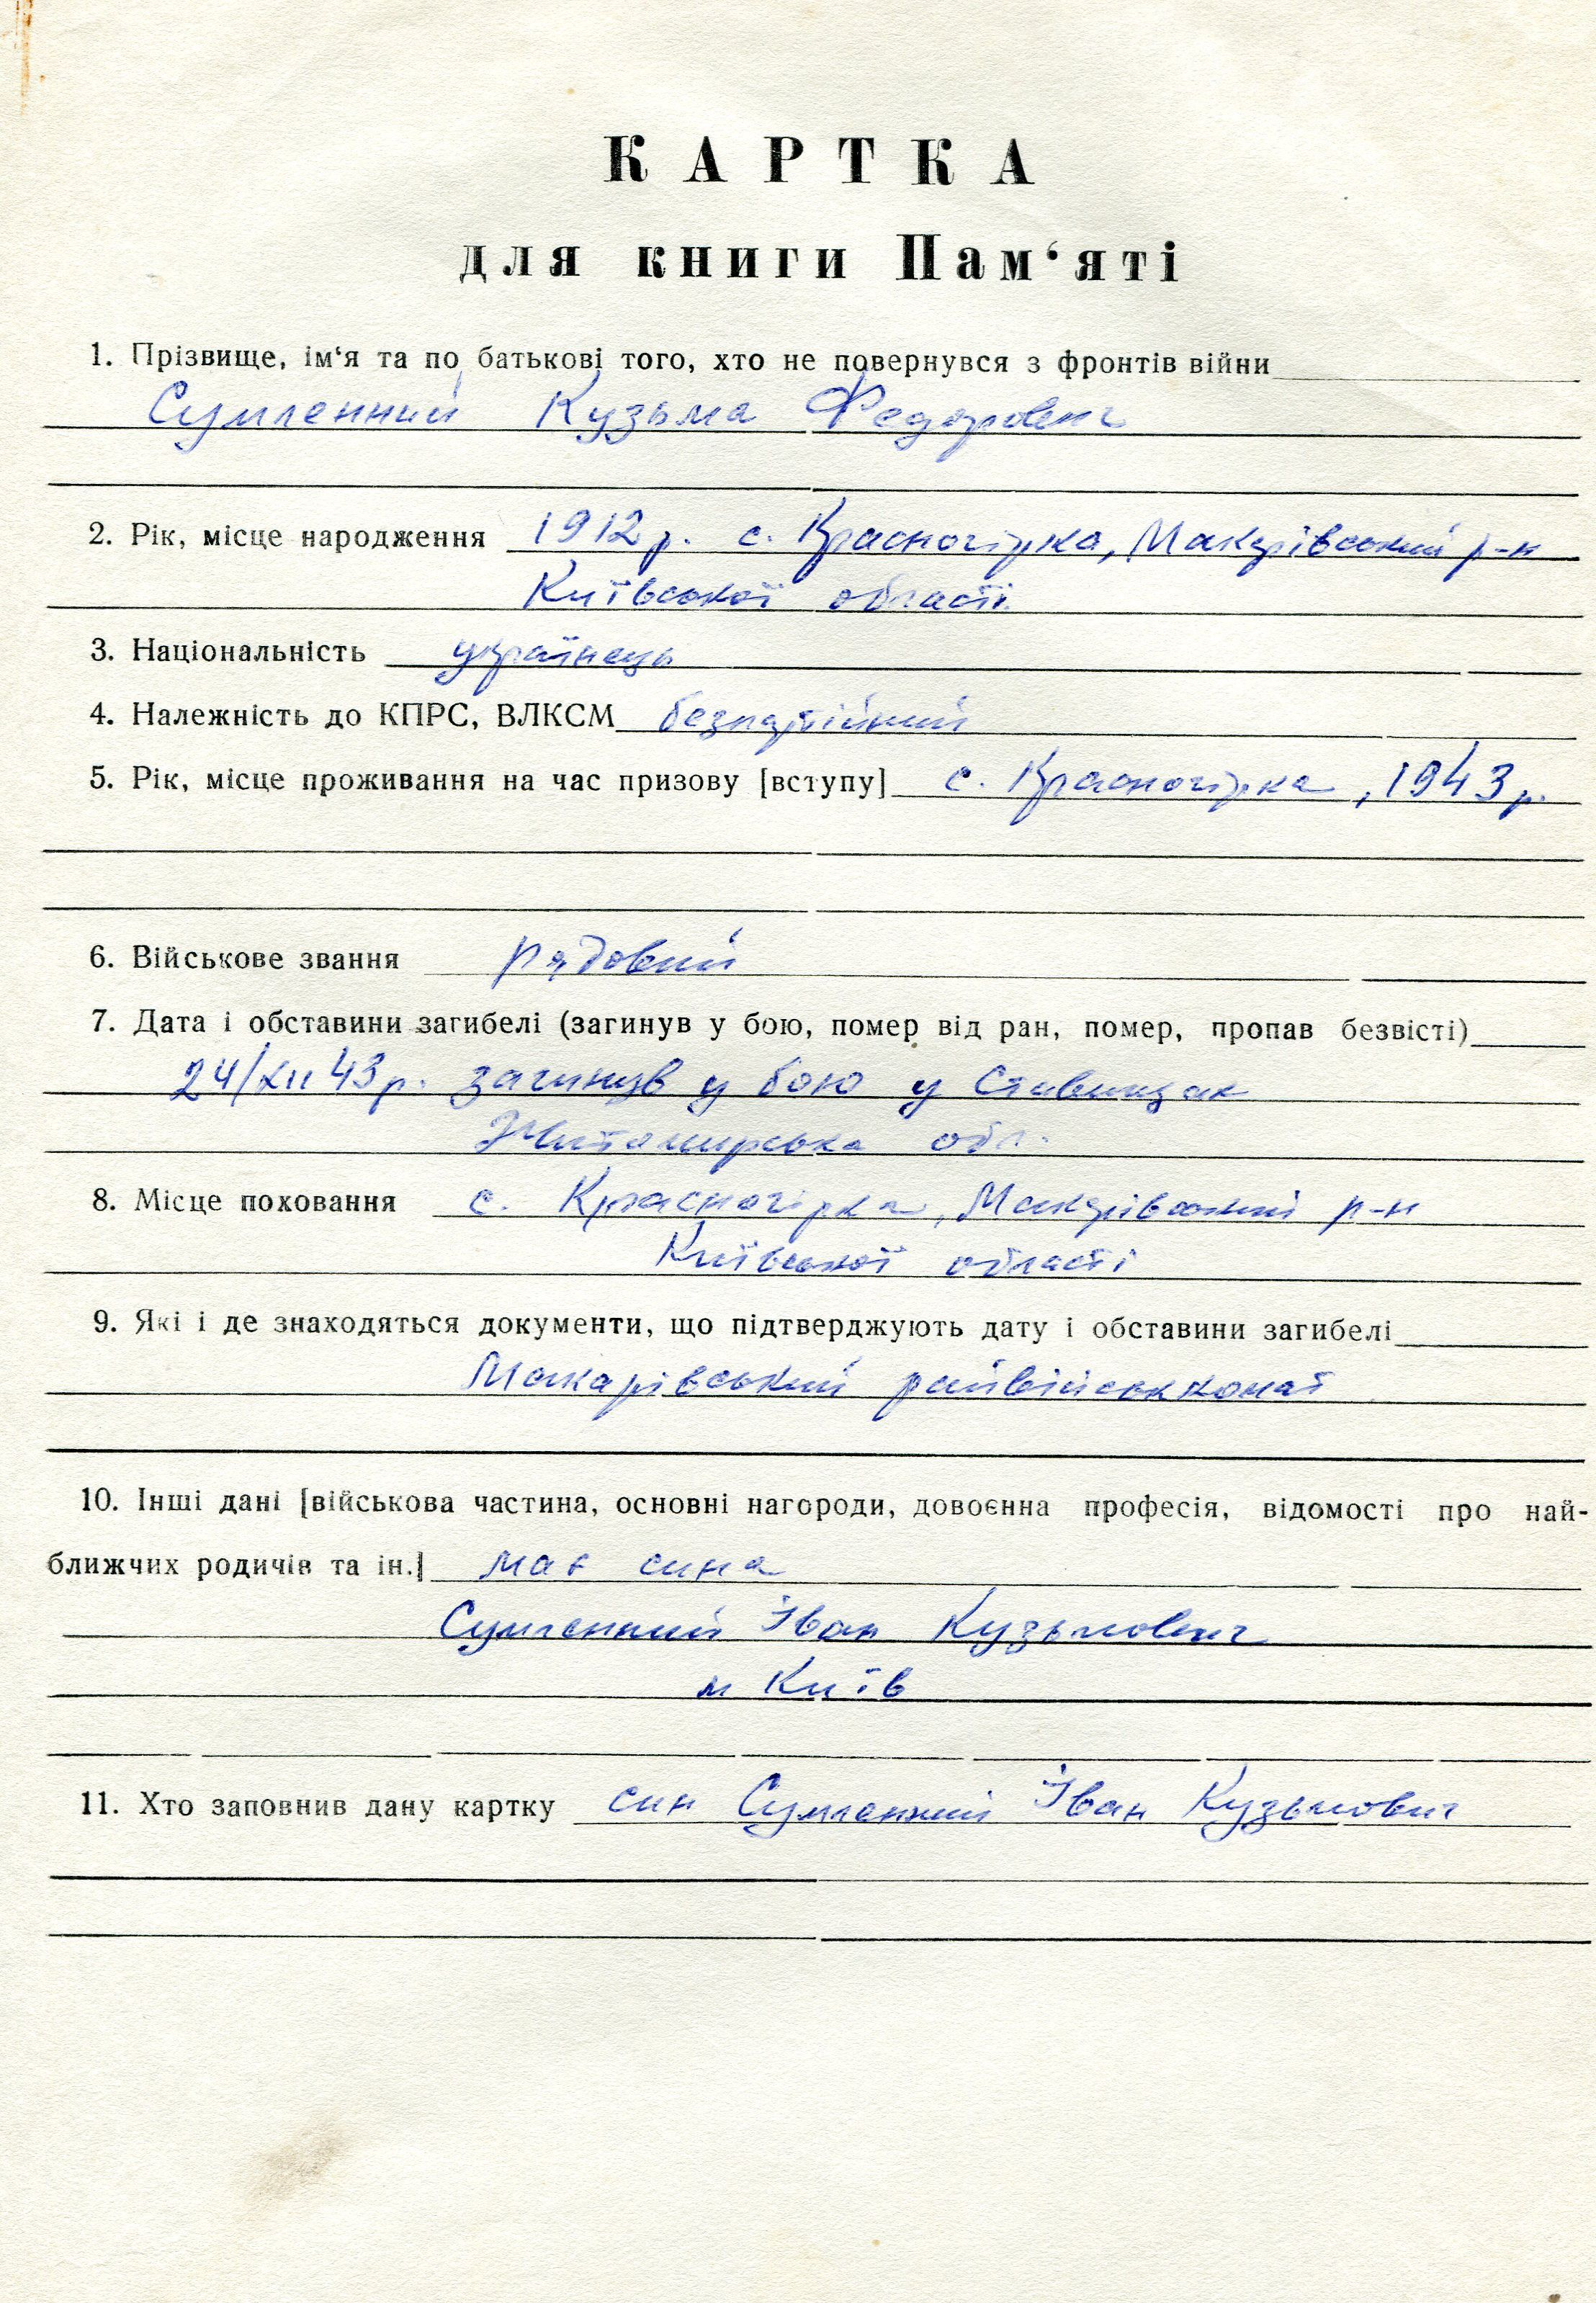 КАРТКА
для книги Пам‘яті
1. Прізвище, ім‘я та по батькові того, хто не повернувся з фронтів війни
Сумленний Кузьма Федорович
2. Рік, місце народження 1912 р. с. Красногірка, Макарівський р-н
Київської області
3. Національність українець
4. Належність до КПРС, ВЛКСМ безпартійний
5. Рік, місце проживання на час призову [вступу] с. Красногірка, 1943 р.
6. Військове звання рядовий
7. Дата і обставини загибелі (загинув у бою, помер від ран, помер, пропав безвісті)
24/XII 43 р. загинув у бою у Ставищах
Житомирська обл.
8. Місце поховання с. Красногірка, Макарівський р-н
Київської області
9. Які і де знаходяться документи, що підтверджують дату і обставини загибелі
Макарівський райвійськкомат
10. Інші дані [військова частина, основні нагороди, довоєнна професія, відомості про най-
ближчих родичів та ін.] має сина
Сумленний Іван Кузьмович
м Київ
11. Хто заповнив дану картку син Сумленний Іван Кузьмович